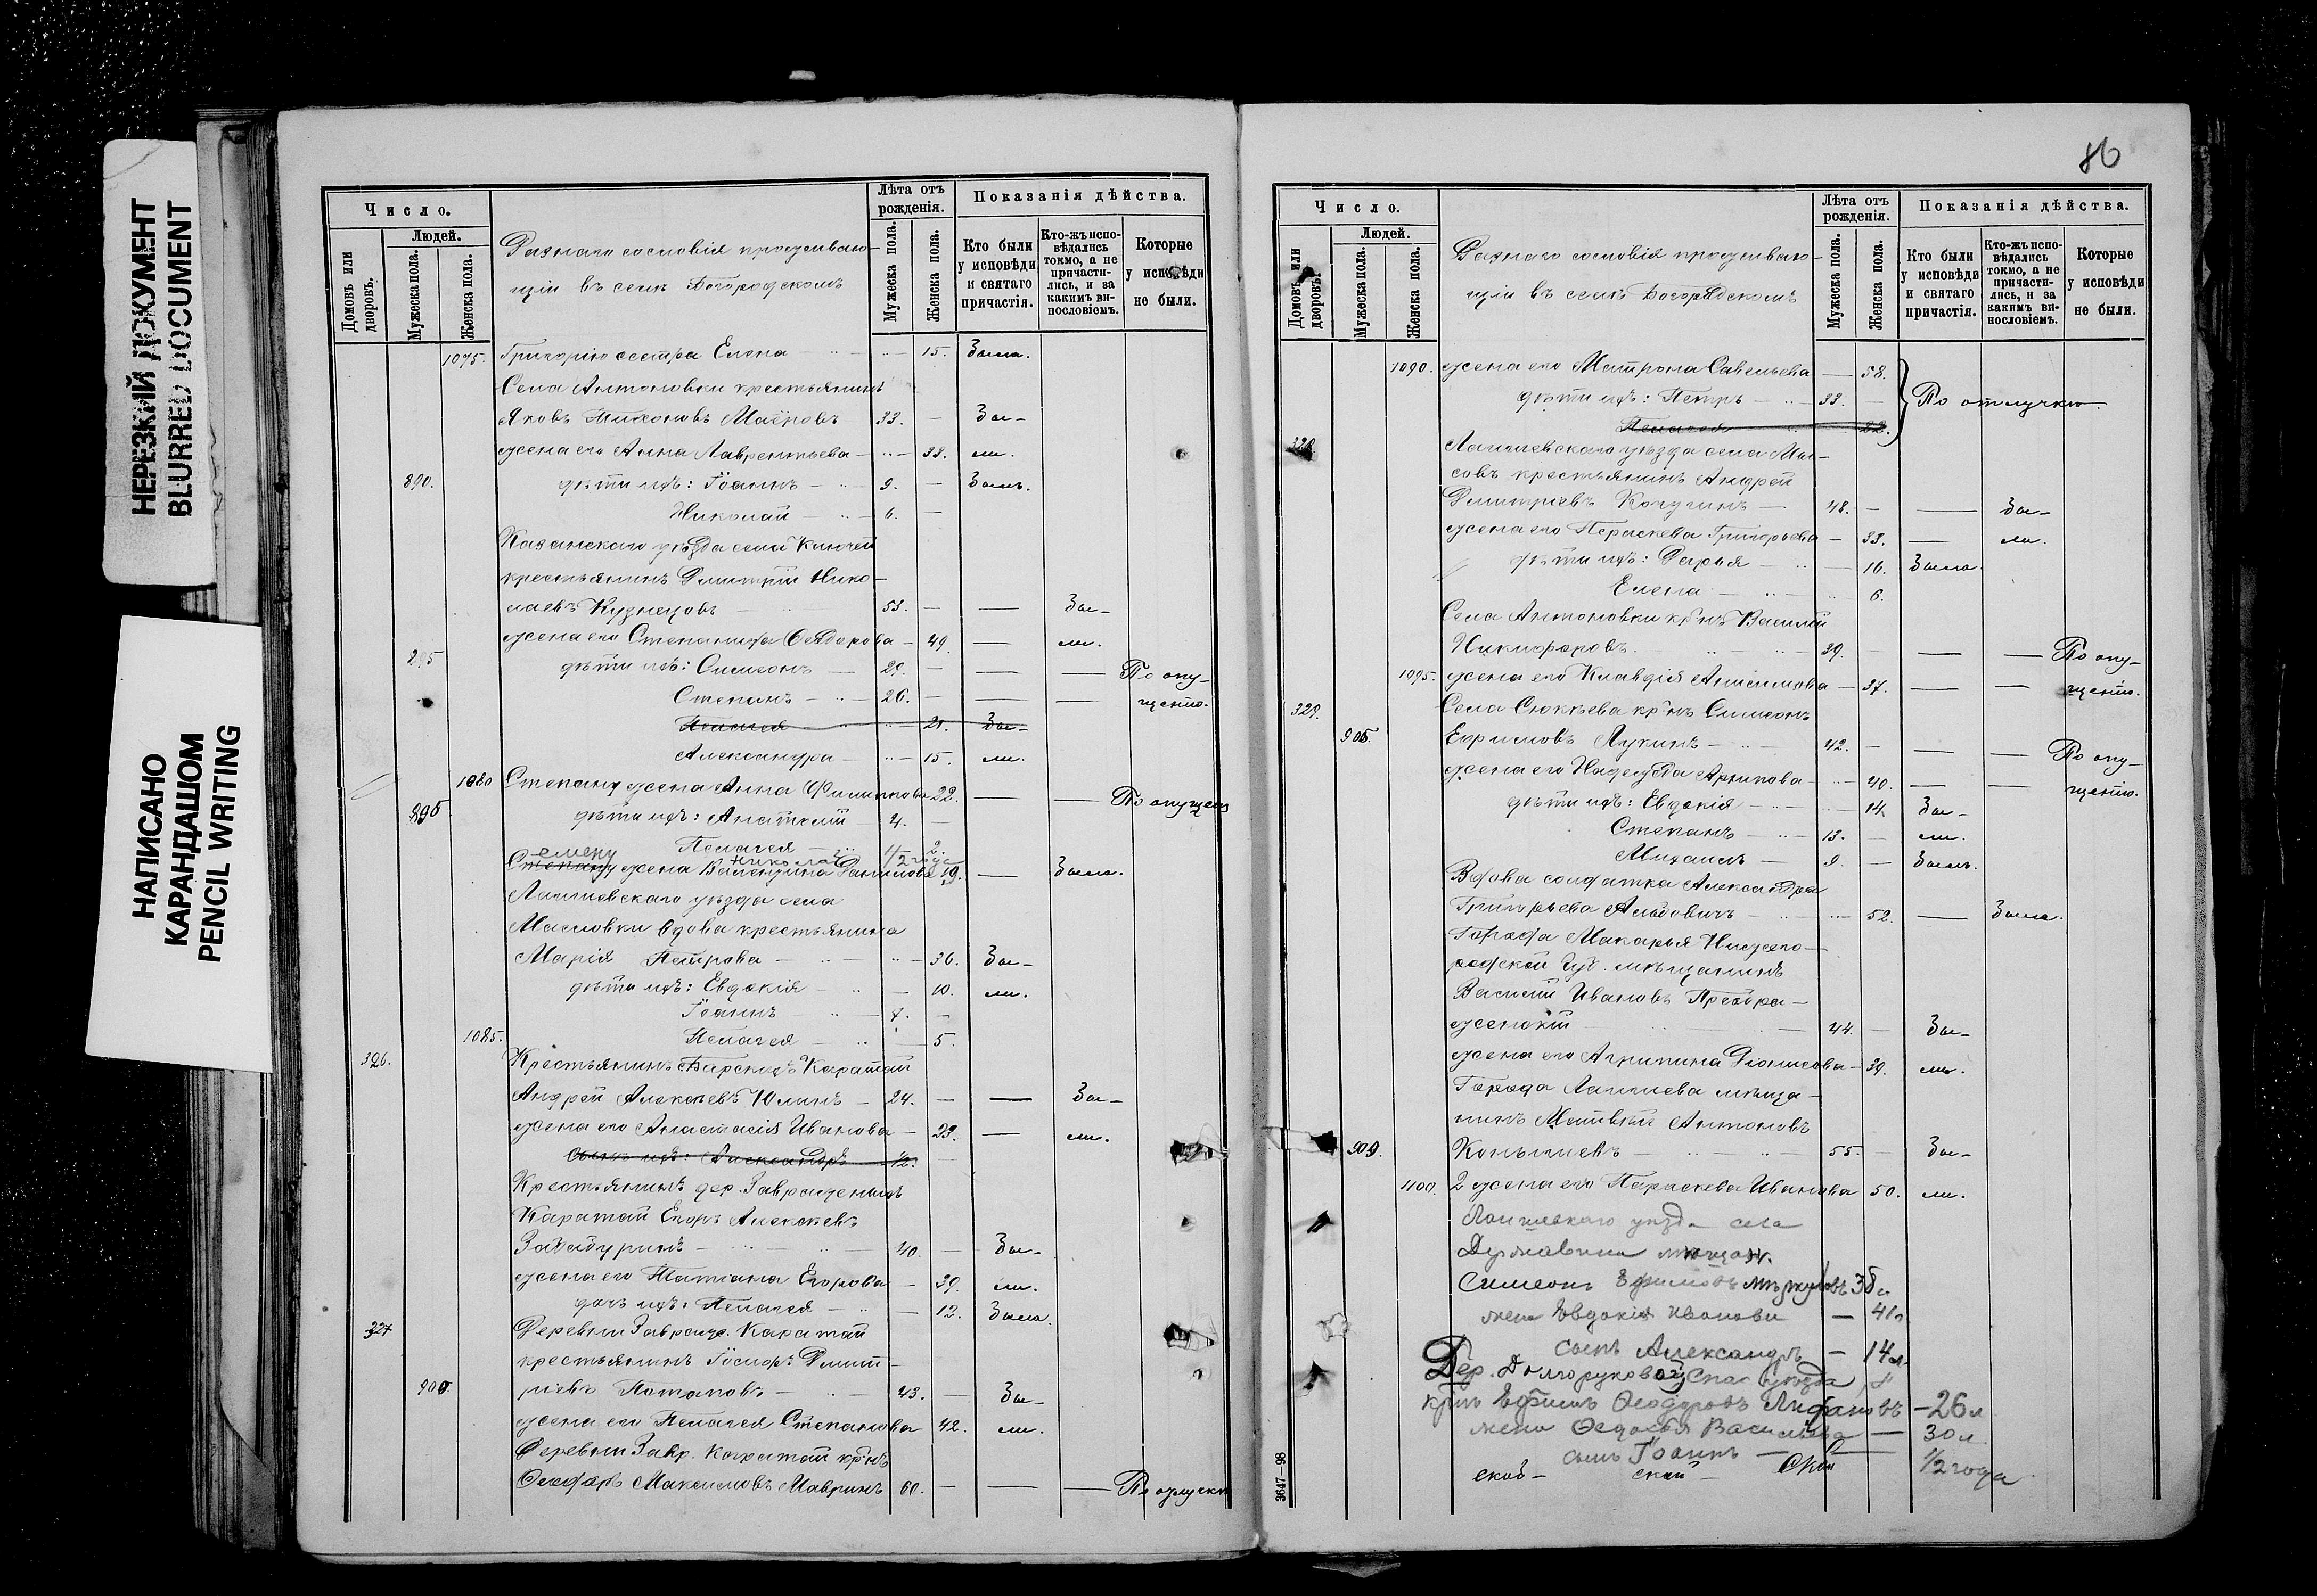 НЕРЕЗКИЙ ДОКУМЕНТ
BLURRED DOCUMENT
НАПИСАНО
КАРАНДАШОМ
PENCIL WRITING
Число.
Людей.
Домовъ или дворовъ.
Мужеска пола.
Женска пола.
Разнаго сословія проживаю-
щіи въ селѣ Богородскомъ
Лѣта отъ рожденія.
Мужеска пола.
Женска пола.
Показанія дѣйства.
Кто были у исповѣди и святаго причастія.
Кто-жъ испо-вѣдались токмо, а не причасти-лись, и за какимъ ви-нословіемъ.
Которые у исповѣди не были.
1075. Григорію сестра Елена — 15. Была.
Села Антоновки крестьянинъ
Яковъ 33. — Бы-
жена его Анна Лаврентьева — 33. ли.
890. дѣти ихъ: Іоаннъ — 9. — Былъ.
Николай — 6. —
Казанскаго уѣзда села Ключей
крестьянинъ Димитрій Нико-
лаевъ Кузнецовъ 53. — — Бы-
жена его Стефанида Ѳеодорова — 49. — ли.
дѣти ихъ: Симеонъ — 29. — — — По опу-
Степанъ — 26. — — — щенію.
Пелагея 21. Бы-
Александра — 15. ли.
1080 Степану жена Анна Филиппова 22. — — По опущен
895 дѣти ихъ: Анатолій 4. —
Пелагея — 2.
Николай 1/2 года
Семену
Степану жена Валентина Данилова 19. — Была.
Лаишевскаго уѣзда села
Масловки вдова крестьянина
Марія Петрова — 36. Бы-
дѣти ихъ: Евдокія — 10. ли.
Іоаннъ — 7. —
1085. Пелагея — 5.
326. Крестьянинъ Каратай
Андрей Алексѣевъ Юлинъ — 24. — — Бы-
жена его Анастасія Иванова — 23. — ли.
сынъ ихъ: Александръ 1/2. —
Крестьянинъ дер. Заовражныхъ
Каратай Егоръ Алексѣевъ
40. — Бы-
жена его Татіана Егорова — 39. ли.
дочь ихъ: Пелагея — 12. Была.
327 Деревни Заовраж. Каратай
крестьянинъ Іосифъ Димит-
900. ріевъ Потаповъ — 43. — Бы-
жена его Пелагея Степанова 42. ли.
Деревни Заовр. Каратай кр-нъ
Ѳеодоръ Максимовъ Мавринъ 60. — — — По отлучкѣ
86
Число.
Людей.
Домовъ или дворовъ.
Мужеска пола.
Женска пола.
Разнаго сословія проживаю-
щіи въ селѣ Богородскомъ
Лѣта отъ рожденія.
Мужеска пола.
Женска пола.
Показанія дѣйства.
Кто были у исповѣди и святаго причастія.
Кто-жъ испо-вѣдались токмо, а не причасти-лись, и за какимъ ви-нословіемъ.
Которые у исповѣди не были.
1090. жена его Матрона Савельева — 58.
дѣти ихъ: Петръ — 33. — По отлучкѣ.
Пелагея 22.
328. Лаишевскаго уѣзда села Мы-
совъ крестьянинъ Андрей
Димитріевъ 48. — — Бы-
жена его Параскева Григорьева — 33. — ли.
дѣти ихъ: Дарья — 16. Была.
Елена — 6.
Села Антоновки кр-нъ Василій
Никифоровъ 39. — — — По опу-
1095. жена его Клавдія Анисимова — 37. — — щенію.
329. Села Сюкѣева кр-нъ Симеонъ
905. Ефимовъ Лукинъ — 42. — — — По опу-
жена его Надежда Архипова — 40. — — щенію.
дѣти ихъ: Евдокія — 14. Бы-
Степанъ — 13. — ли.
Михаилъ — 9. — Былъ.
Вдова солдатка Александра
Григорьева — 52. — Была.
Города Макарья Нижего-
родской губ. мѣщанинъ
Василій Ивановъ Преобра-
женскій — 44. — Бы-
жена его Агрипина Діонисова — 39. ли.
Города Лаишева мѣща-
нинъ Матвѣй Антоновъ
909. 55. — Бы-
1100. 2 жена его Параскева Иванова 50. ли.
Лаишевскаго уѣзда села
Державина мѣщан.
Симеонъ Ефимовъ 38 л
жена Евдокія Иванова — 41 л
сынъ Александръ — 14 л.
Дер. Долгоруковой Спас. уѣзда
кр-нъ Ефимъ Ѳеодоровъ — 26 л
жена Ѳедосья Васильева — 30 л
сынъ Іоаннъ — 1/2 года
скаб- ской -
3647—98